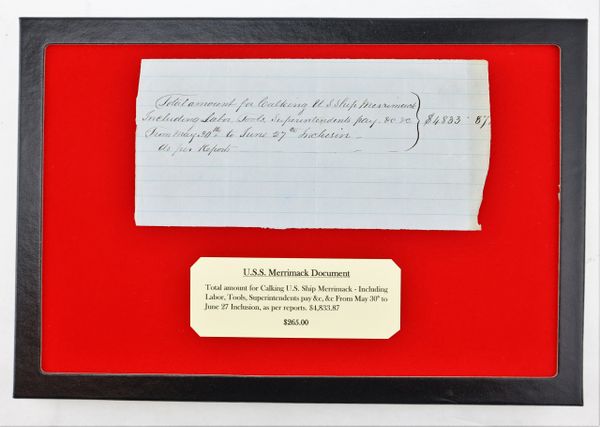 Total amount for Calking U S Ship Merrimack
Including Labor, Tools, Superintendents pay &c &c } $4833.87
From May 30th to June 27th Inclusin
As per Reports
U.S.S. Merrimack Document
Total amount for Calking U.S. Ship Merrimack - Including
Labor, Tools, Superintendents pay &c, &c From May 30th to
June 27 Inclusion, as per reports. $4,833.87
$265.00